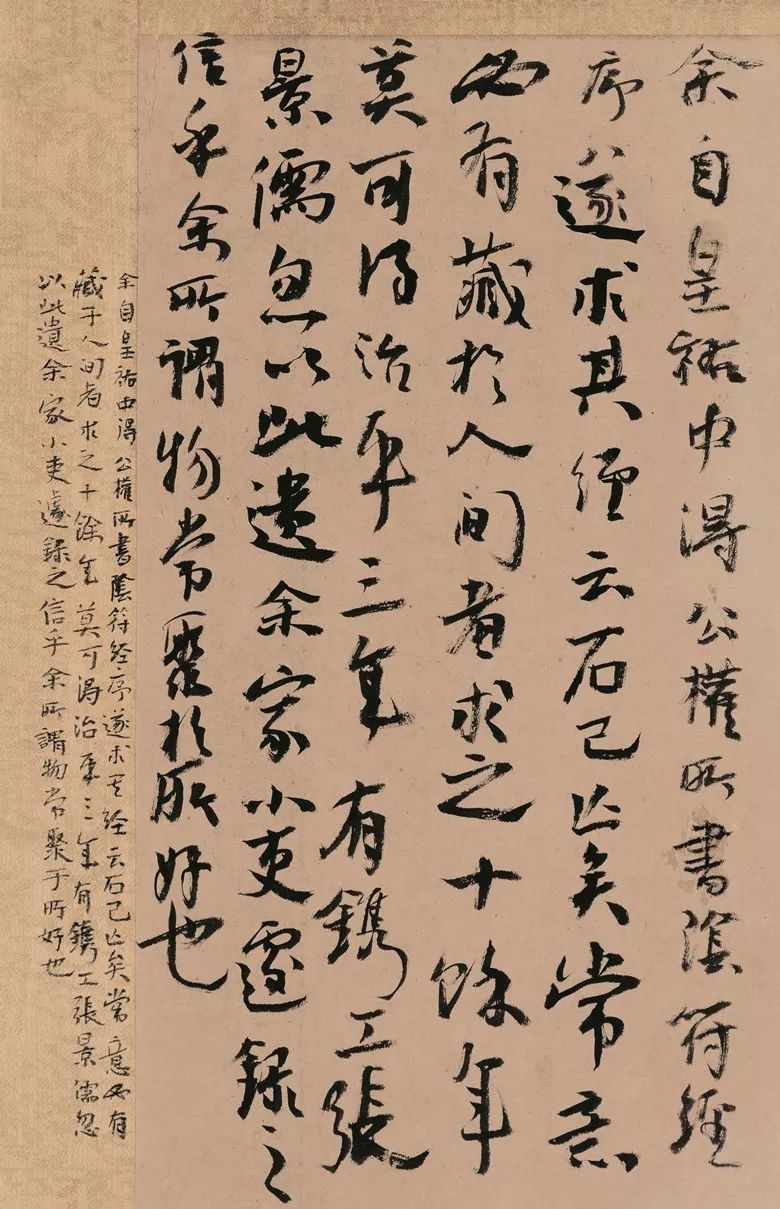 余自皇祐中得公權所書陰符經
序遂求其經云石已亡矣常意
必有藏於人間者求之十餘年
莫可得治平三年有鐫工張
景儒忽以此遺余家小吏遽錄之
信乎余所謂物常聚於所好也
余自皇祐中得公權所書陰符经序遂求其经云石已亡矣常意必有
藏于人间者求之十餘年莫可得治平三年有鐫工張景儒忽
以此遺余家小吏遽録之信乎余所謂物常聚于所好也